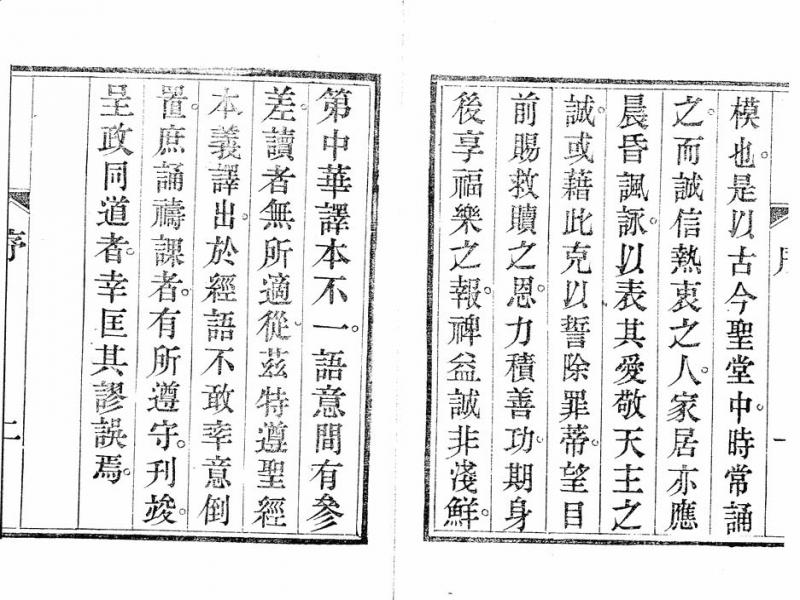 模也。是以古今聖堂中。時常誦
之。而誠信熱衷之人。家居亦應
晨昏諷詠。以表其愛敬天主之
誠。或藉此克以誓除罪蒂。望目
前賜救贖之恩。力積善功。期身
後享福樂之報。裨益誠非淺鮮。
序
一
第中華譯本不一。語意間有參
差。讀者無所適從。茲特遵聖經
本義譯出。於經語不敢率意倒
置。庶誦禱課者。有所遵守。刊竣。
呈政同道者。幸匡其謬誤焉。
序
二